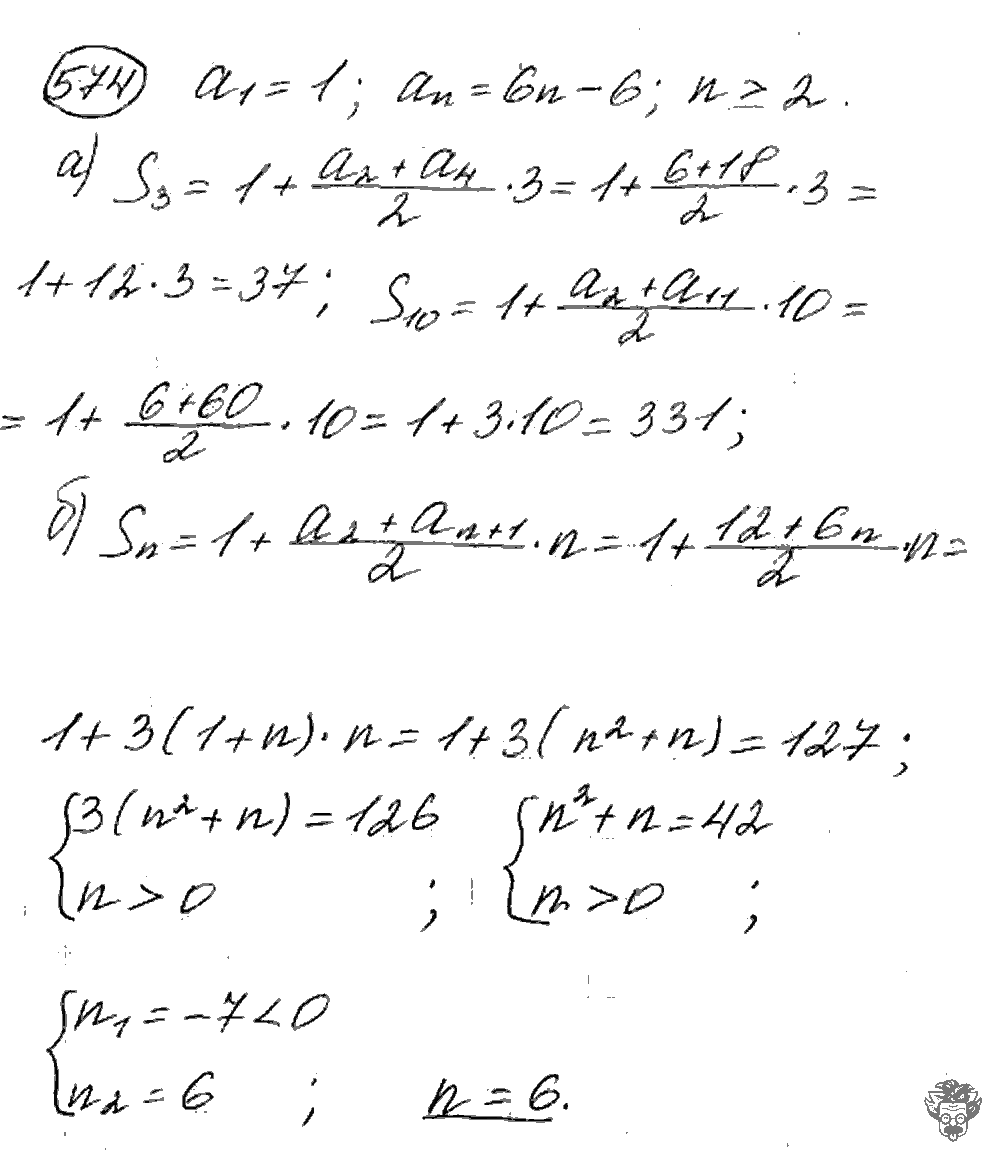 574 a₁ = 1; aₙ = 6n − 6; n ≥ 2.
а) S₃ = 1 + (a₂ + a₄)/2 · 3 = 1 + (6 + 18)/2 · 3 =
1 + 12 · 3 = 37; S₁₀ = 1 + (a₂ + a₁₁)/2 · 10 =
= 1 + (6 + 60)/2 · 10 = 1 + 3 · 10 = 331;
б) Sₙ = 1 + (a₂ + aₙ₊₁)/2 · n = 1 + (12 + 6n)/2 · n =
1 + 3(1 + n) · n = 1 + 3(n² + n) = 127;
{3(n² + n) = 126 {n² + n = 42
n > 0 ; n > 0 ;
{n₁ = −7 < 0
n₂ = 6 ; n = 6.